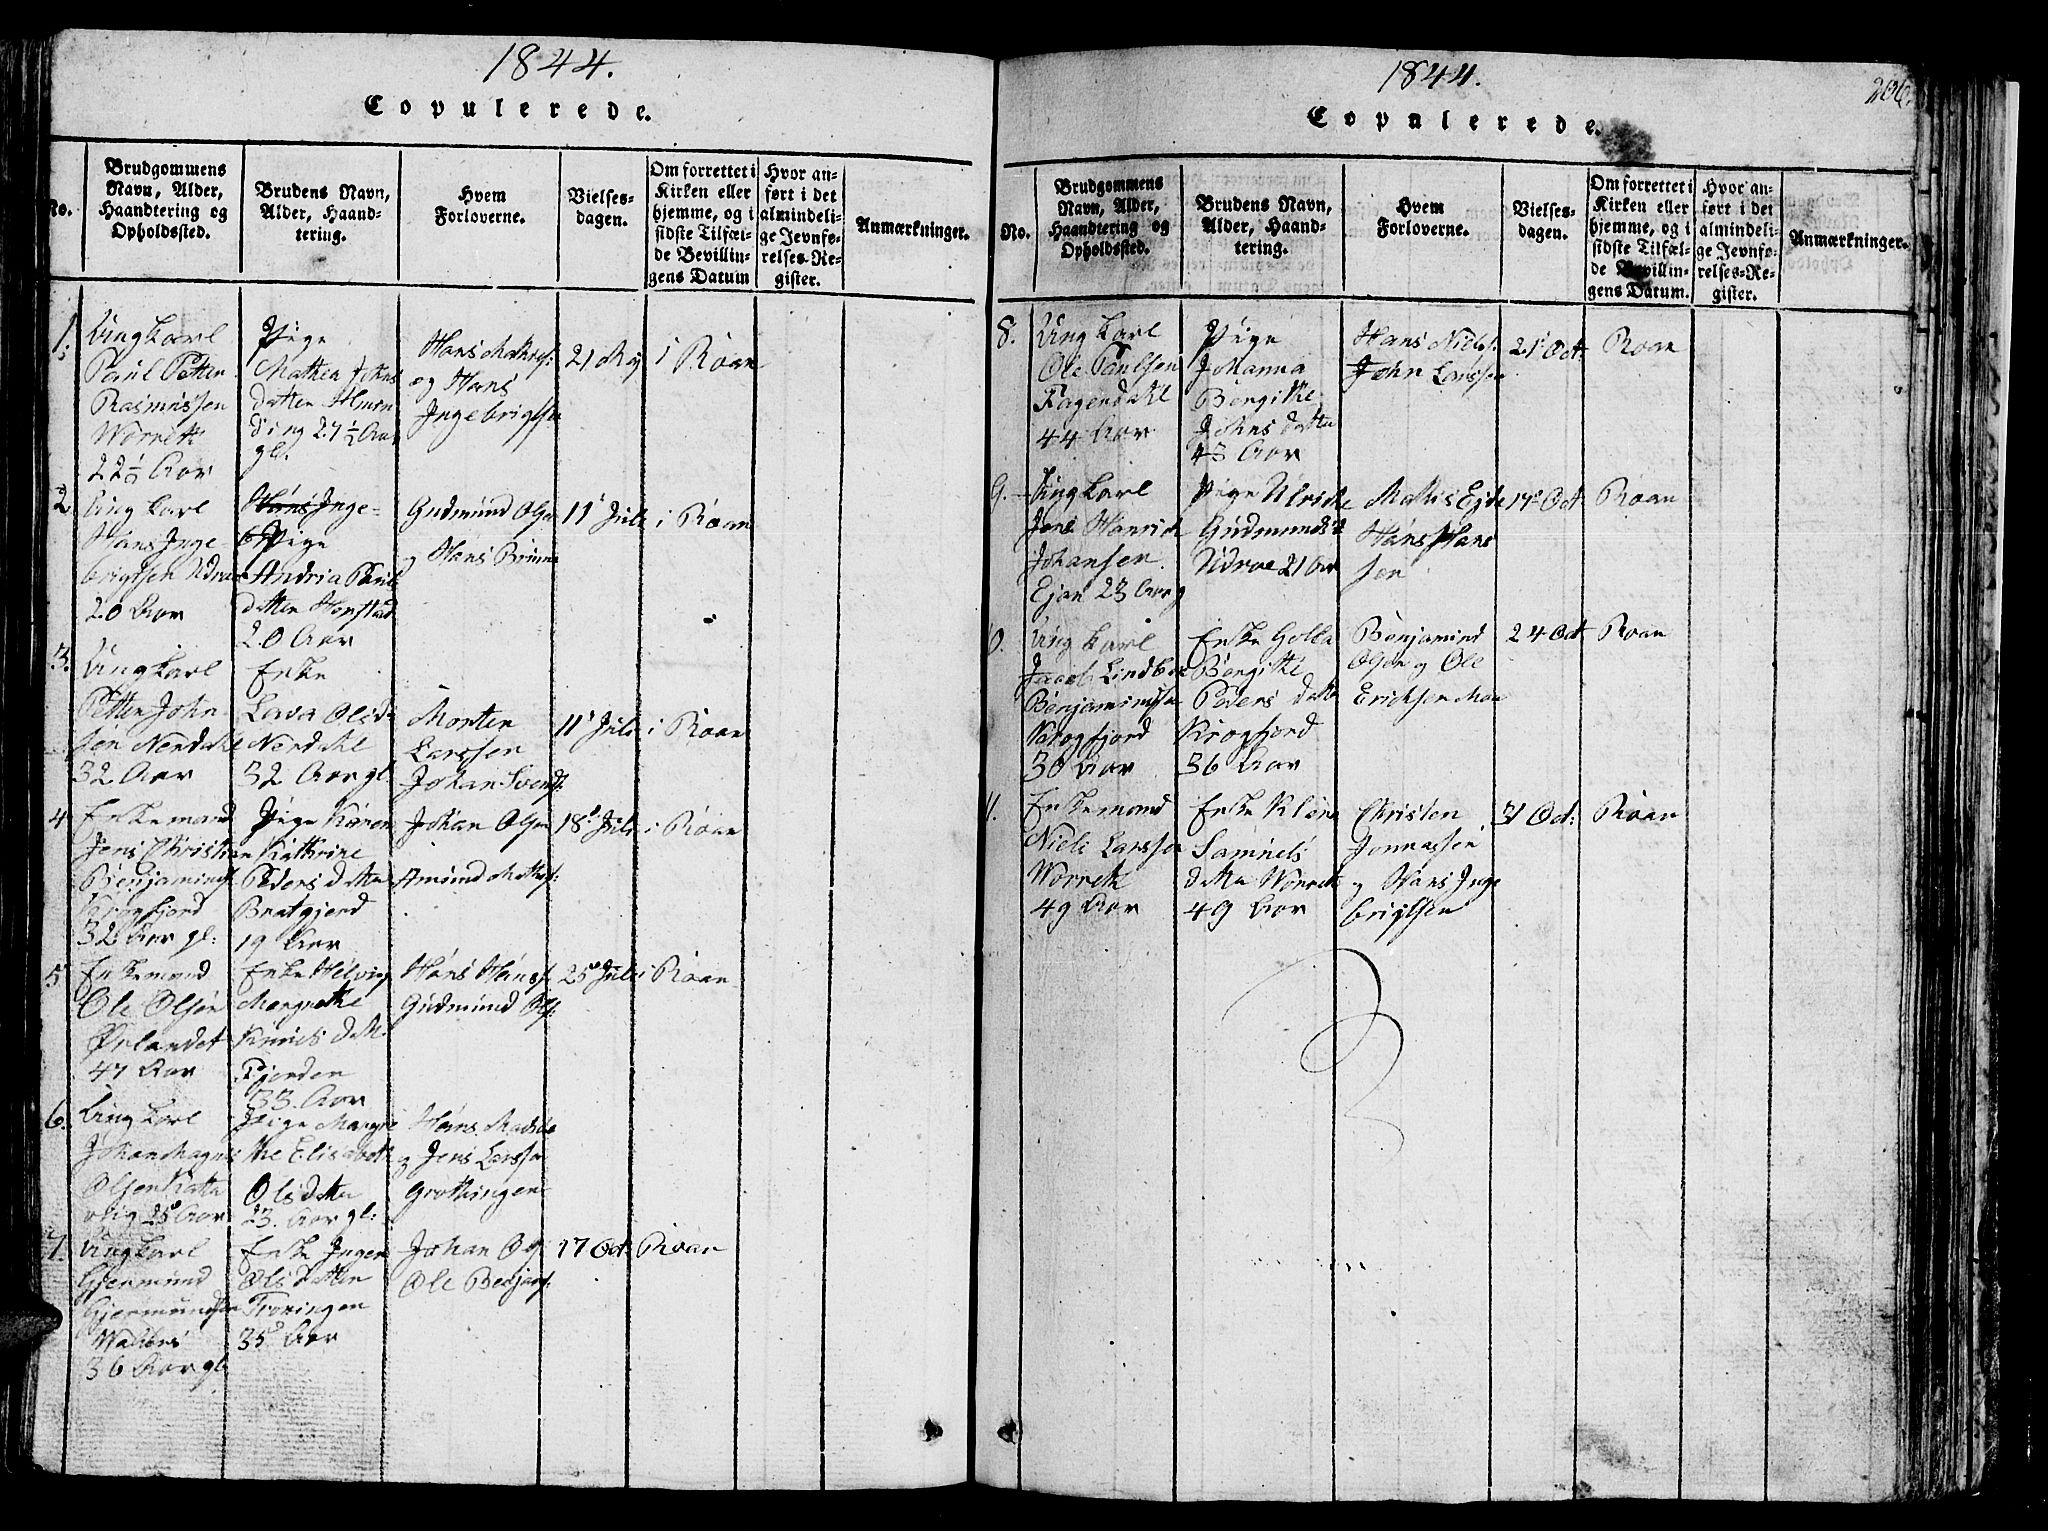 1844.
Copulerede.
No.
Brudgommens
Navn, Alder,
Haandtering og
Opholdssted.
Brudens Navn,
Alder, Haand-
tering.
Hvem
Forloverne.
Vielses-
dagen.
Om forrettet i
Kirken eller
hjemme, og i
sidste Tilfæl-
de Bevillin-
gens Datum
Hvor an-
ført i det
almindeli-
ge Jevnfø-
relses-Re-
gister.
Anmærkninger.
1.
Ung karl
Paul Petter
Rasmussen
Worreth
22½ Aar
Pige
Mathea Johns
datter Almen
ding 27½ Aar
gl.
Hans Mathis:
og Hans
Ingebrigtsen
21 Maj
i Roan
2
Ung karl
Hans Inge-
brigtsen Udroe
20 Aar
Hans Inge-
Pige
Andria Pauls
datter Hopstad
20 Aar
Gudmund Olsen
og Hans
11 Juli
i Roan
3.
Ung karl
Petter John
sen Nerdahl
32 Aar
Enke
Lava Olsd
Nerdahl
32 Aar gl.
Morten
Larssen
Johan Svends:
11 Juli
i Roan
4
Enkemand
Jens Christian
Benjamins:
Krogfjord
32 Aar gl:
Pige Karen
Kathrine
Peders datter
Bratgjerd
19 Aar
Johan Olsen
Amund Mathis:
18 Juli
i Roan
5
Enkemand
Ole Olsen
Ørlandet
47 Aar
Enke Helvig
Margrethe
Knuds datt.
Fjorden
33 Aar
Hans Hanss.
Gudmund Ols:
25 Juli
i Roan
6.
Ung karl
Johan Magnus
Olsen
25 Aar
Pige Margre
the Elisabeth
Olsdatter
23 Aar gl:
Hans
og Jens Larssen
Grottingen
7.
Ung karl
Gjermund
Gjermundsen
36 Aar gl
Enke Inger
Olsdatter
Froningen
35 Aar
Johan Og
Ole Benjam:
17 Oct:
Roan
1844.
206.
Copulerede.
No.
Brudgommens
Navn, Alder,
Haandtering og
Opholdssted.
Brudens Navn,
Alder, Haand-
tering.
Hvem
Forloverne.
Vielses-
dagen.
Om forrettet i
Kirken eller
hjemme, og i
sidste Tilfæl-
de Bevillin-
gens Datum.
Hvor an-
ført i det
almindeli-
ge Jevnfø-
relses-Re-
gister.
Anmærkninger.
8.
Ung karl
Ole Paulsen
Fagerdahl
44 Aar
Pige
Johanna
Bergithe
Johnsdatter
43 Aar
Hans Niels:
John Larssen
21 Oct:
Roan
9.
Ung karl
Jens Henrich
Johansen
23 Aar g
Pige Ulriche
Gudmundsd
Udroe 21 Aar
Mathis Ejde
Hans Hans
sen
17 Oct
Roan
10.
Ung karl
Jacob Lindboe
Benjaminsen
Krogfjord
30 Aar
Enke Golla
Bergithe
Peders datter
Krogfjord
36 Aar
Benjamind
Olsen og Ole
Ericksen Moe
24 Oct
Roan
11.
Enkemand
Niels Larssen
Worreth
49 Aar
Enke Klara
Samuels
datter Worreth
49 Aar
Christen
Jonnassen
og Hans Inge
brigtsen
31 Oct:
Roan